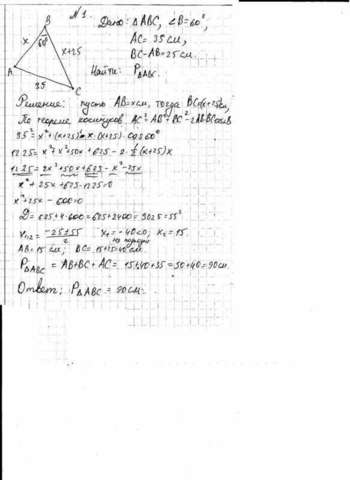 №1.
Дано: △ABC, ∠B=60°,
AC = 35 см,
BC-AB=25 см.
Найти: P△ABC.
B
60°
x
x+25
A
35
C
Решение: пусть AB=x см, тогда BC=(x+25) см,
По теореме косинусов AC²=AB²+BC²-2AB·BC·cosB
35²=x²+(x+25)²-2·x·(x+25)·cos60°
1225=x²+x²+50x+625-2·½(x+25)x
1225=2x²+50x+625-x²-25x
x²+25x+625-1225=0
x²+25x-600=0
D=625+4·600=625+2400=3025=55²
x₁,₂= -25±55 / 2 x₁=-40<0; x₂=15.
не подходит
AB=15 см; BC=15+25=40 см.
P△ABC = AB+BC+AC = 15+40+35=50+40=90 см.
Ответ: P△ABC = 90 см.